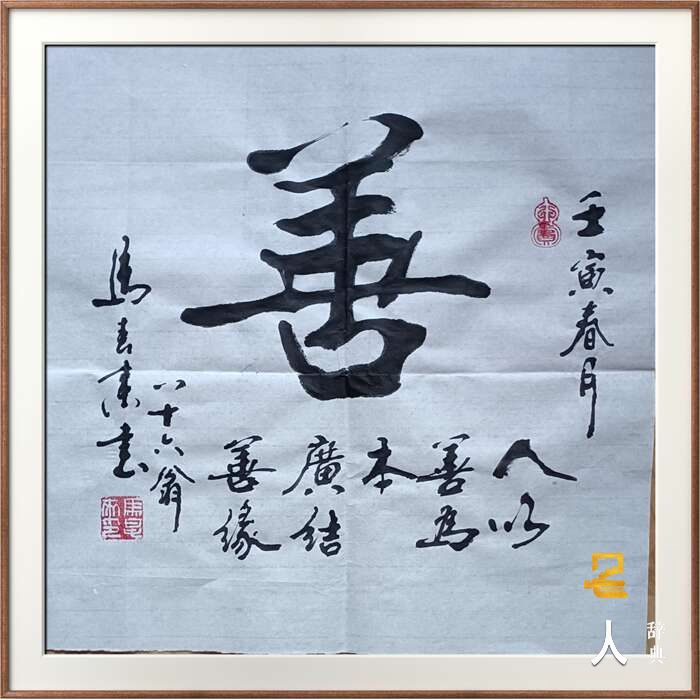 壬寅春月
善
人以
善為
本
廣結
善緣
八十六翁
馬書
名人
辞典